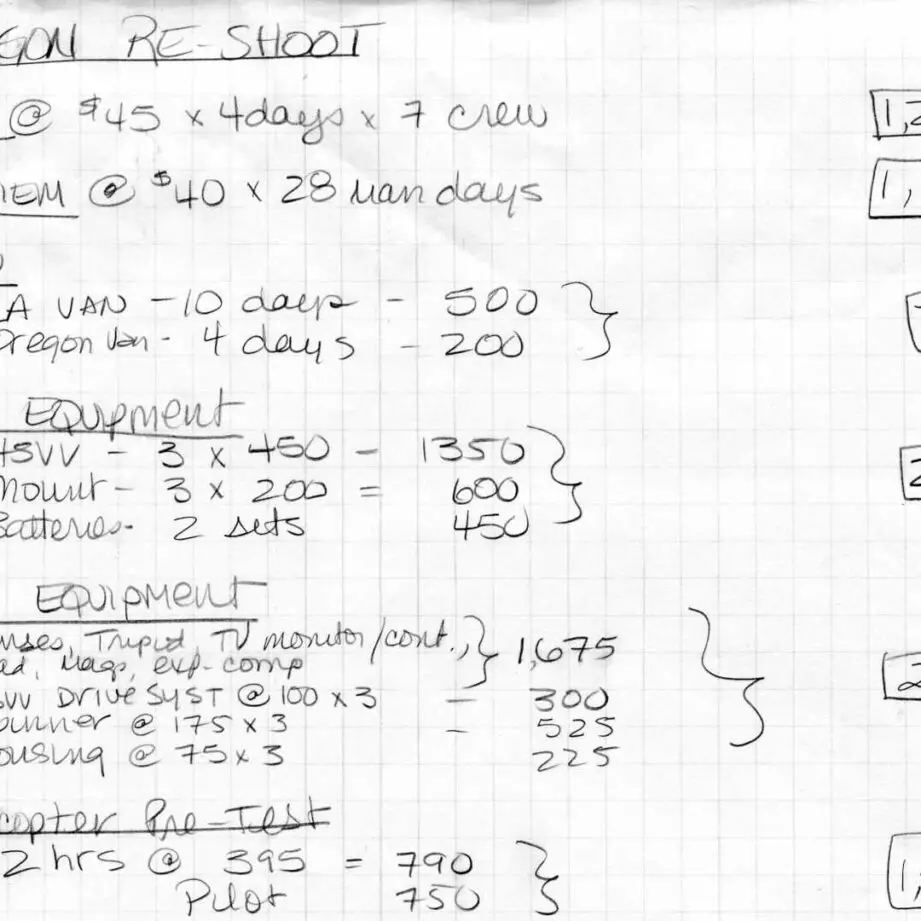 GON RE-SHOOT
@ $45 x 4days x 7 crew 1,2
IEM @ $40 x 28 man days 1,
A VAN - 10 days - 500
Oregon Van - 4 days - 200
EQUIPMENT
HSVV - 3 x 450 - 1350
Mount - 3 x 200 = 600 2
Batteries - 2 sets 450
EQUIPMENT
nses, Tripod, TV monitor/cont., 1,675
ad, Mags, exp. comp
SVV DRIVE SYST @ 100 x 3 - 300 2
unner @ 175 x 3 - 525
ousing @ 75 x 3 225
copter Pre-Test
2 hrs @ 395 = 790 1,
Pilot 750